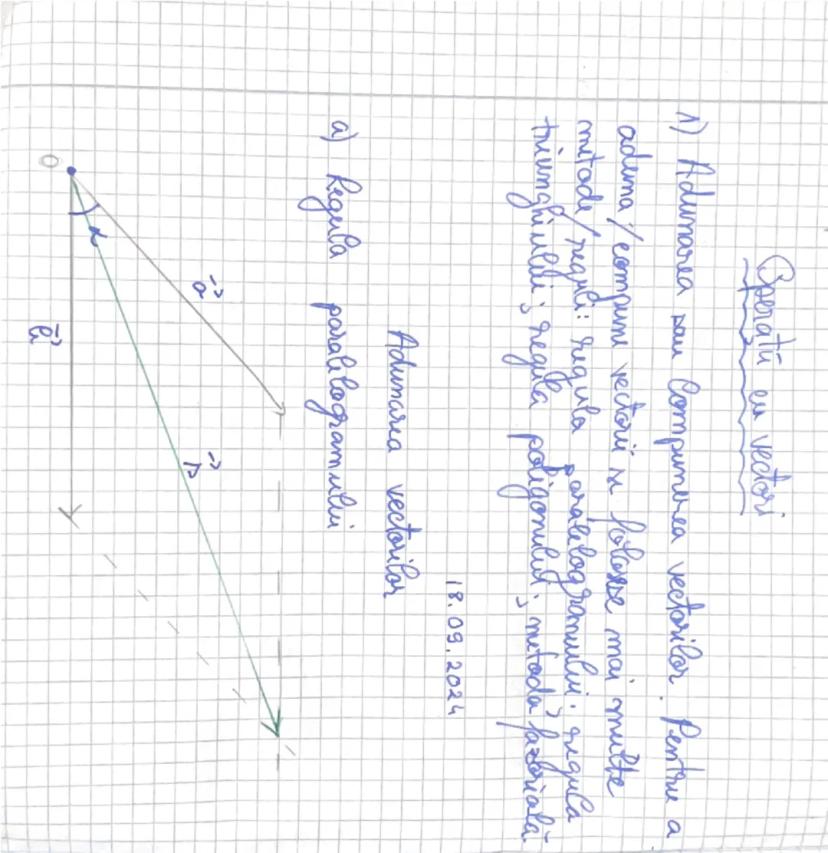 Operații cu vectori
1) Adunarea sau Compunerea vectorilor. Pentru a
aduna / compune vectorii se folosesc mai multe
metode / reguli: regula paralelogramului; regula
triunghiului; regula poligonului; metoda fazorială
18.09.2024
Adunarea vectorilor
a) Regula paralelogramului
O
a
s
α